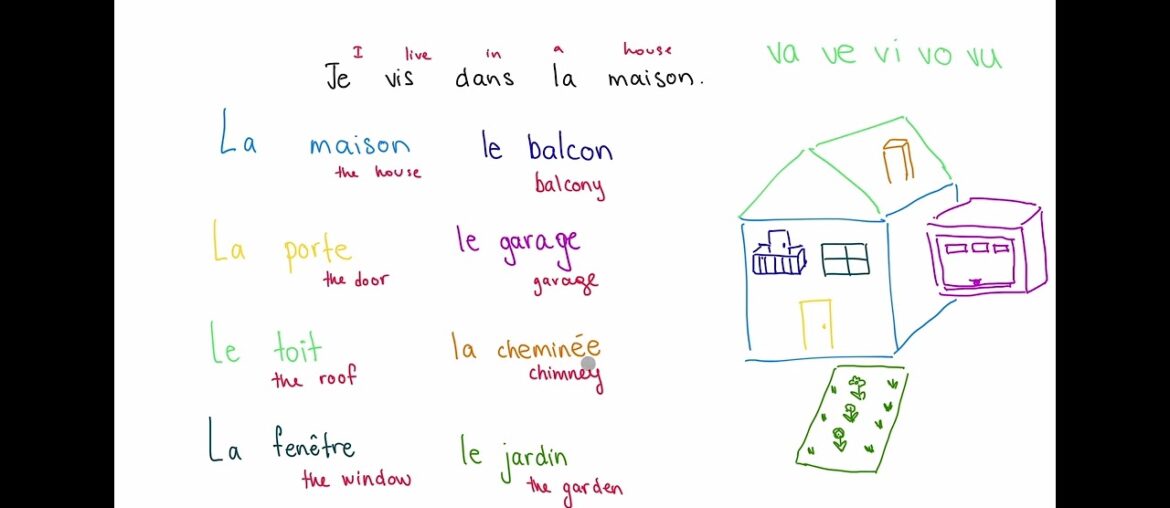 I live in a house
Je vis dans la maison.
va ve vi vo vu
La maison
the house
le balcon
balcony
La porte
the door
le garage
garage
le toit
the roof
la cheminée
chimney
La fenêtre
the window
le jardin
the garden